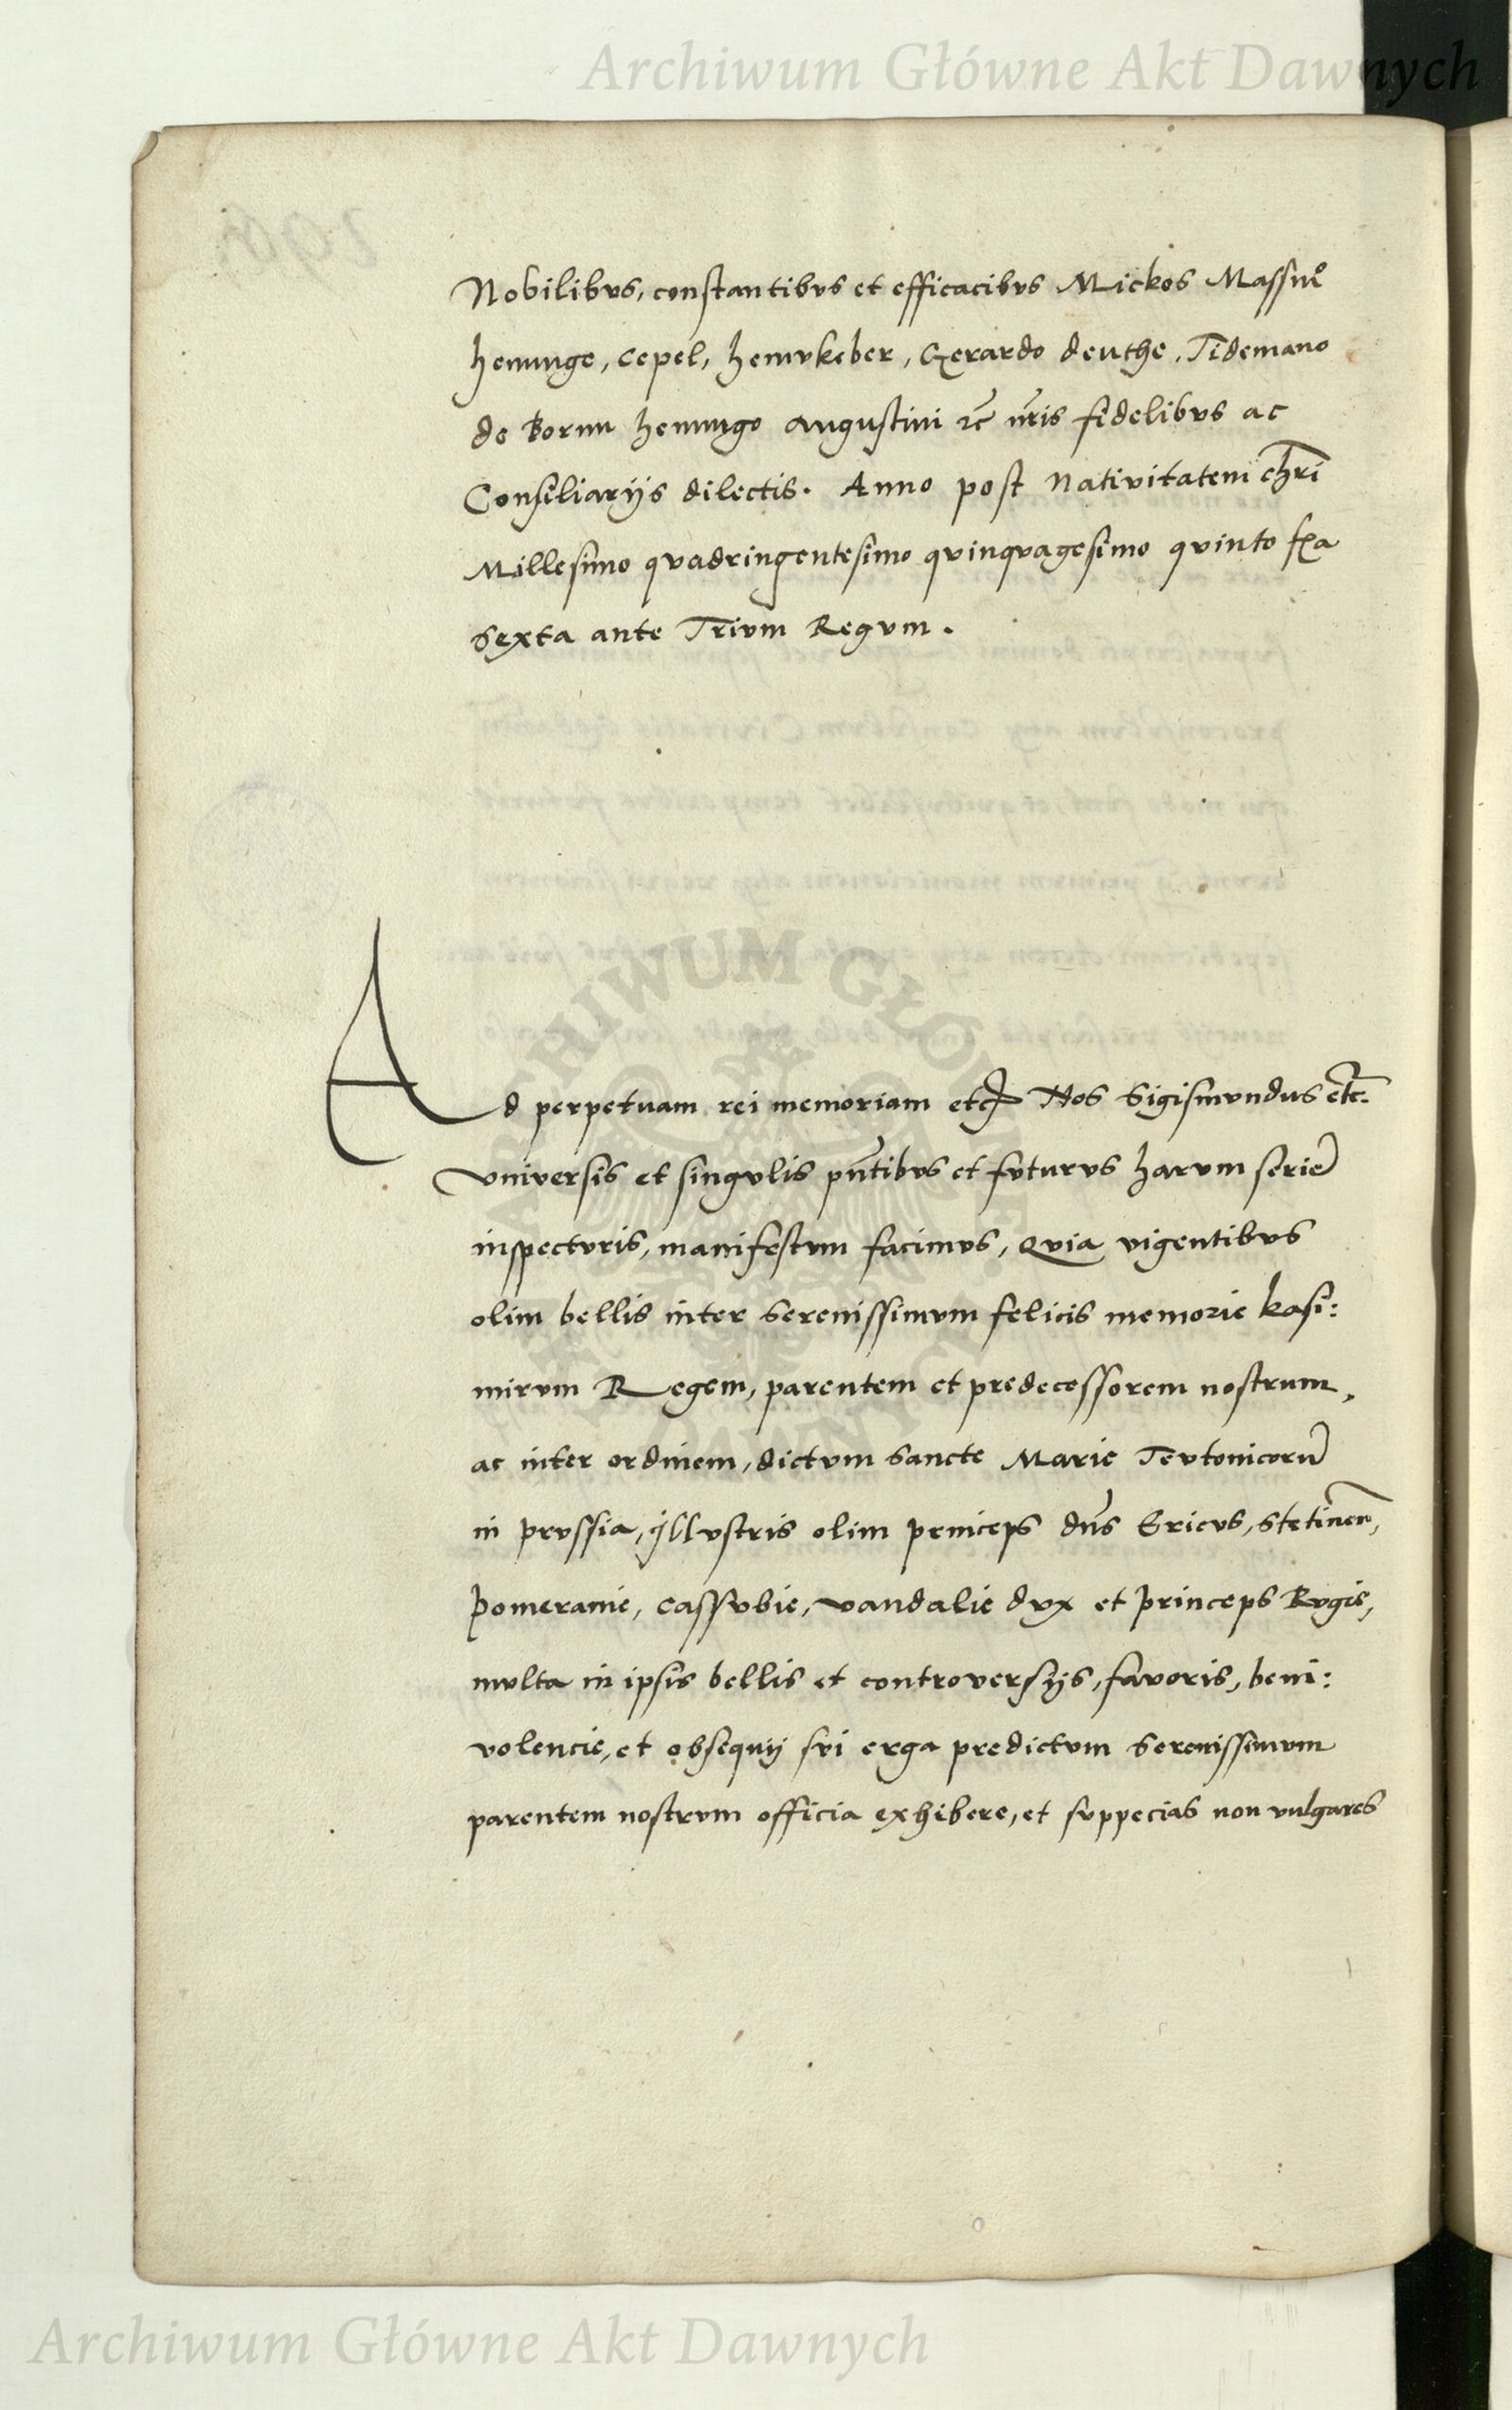 Archiwum Główne Akt Dawnych
Nobilibus, constantibus et efficacibus Mickos Massuͦ
henninge, cepel, henrukeber, Gerardo deuthe, Tidemano
de Bornn henningo Augustini ꝛc̄ nr̄is fidelibus ac
Consiliarijs dilectis. Anno post Nativitatem chr̄i
Millesimo quadringentesimo quinquagesimo quinto fr̄a
sexta ante Trium Regum.
Ad perpetuam rei memoriam etc Nos Sigismundus etc.
universis et singulis pn̄tibus et futurus harum serie
inspecturis, manifestum facimus, Quia vigentibus
olim bellis inter Serenissimum felicis memorie kasi:
mirum Regem, parentem et predecessorem nostrum,
ac inter ordinem, dictum Sancte Marie Teutonicorū
in prussia, jllustris olim princeps dn̄s Ericus, Stetinen̄,
pomeranie, cassubie, vandalie dux et princeps Rugie,
multa in ipsis bellis et controversijs, favoris, beni:
volencie, et obsequij sui erga predictum Serenissimum
parentem nostrum officia exhibere, et suppecias non vulgares
ARCHIWUM GŁÓWNE AKT DAWNYCH
Archiwum Główne Akt Dawnych